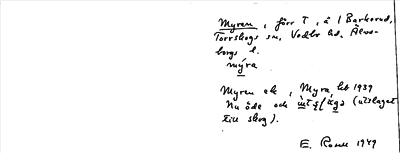 Myren, förr T, å 1 Barkerud,
Torrskogs sn, Vedbo hd, Älvs-
borgs l.
mýra
Myren ek, Myra, hst 1939
Nu öde och (utslaget
till skog).
E. Rosell 1949